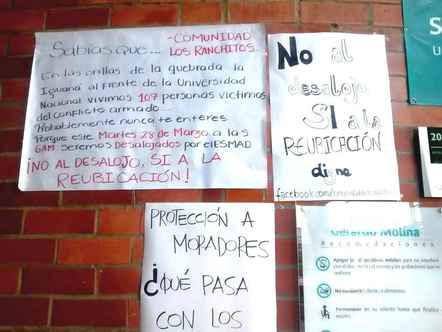 Sabías que... -COMUNIDAD
LOS RANCHITOS.
En las orillas de la quebrada la
Iguaná al frente de la Universidad
Nacional vivimos 107 personas victimas
del conflicto armado...
Probablemente nunca te enteres
Porque este Martes 28 de Marzo a las
6AM seremos Desalojados por el ESMAD
¡NO AL DESALOJO, SI A LA
REUBICACIÓN!
No al
desalojo
SI a la
REUBICACIÓN
digna
facebook.com/
PROTECCIÓN A
MORADORES
¿QUÉ PASA
CON LOS
Gerardo Molina
Recomendaciones
S
U
20